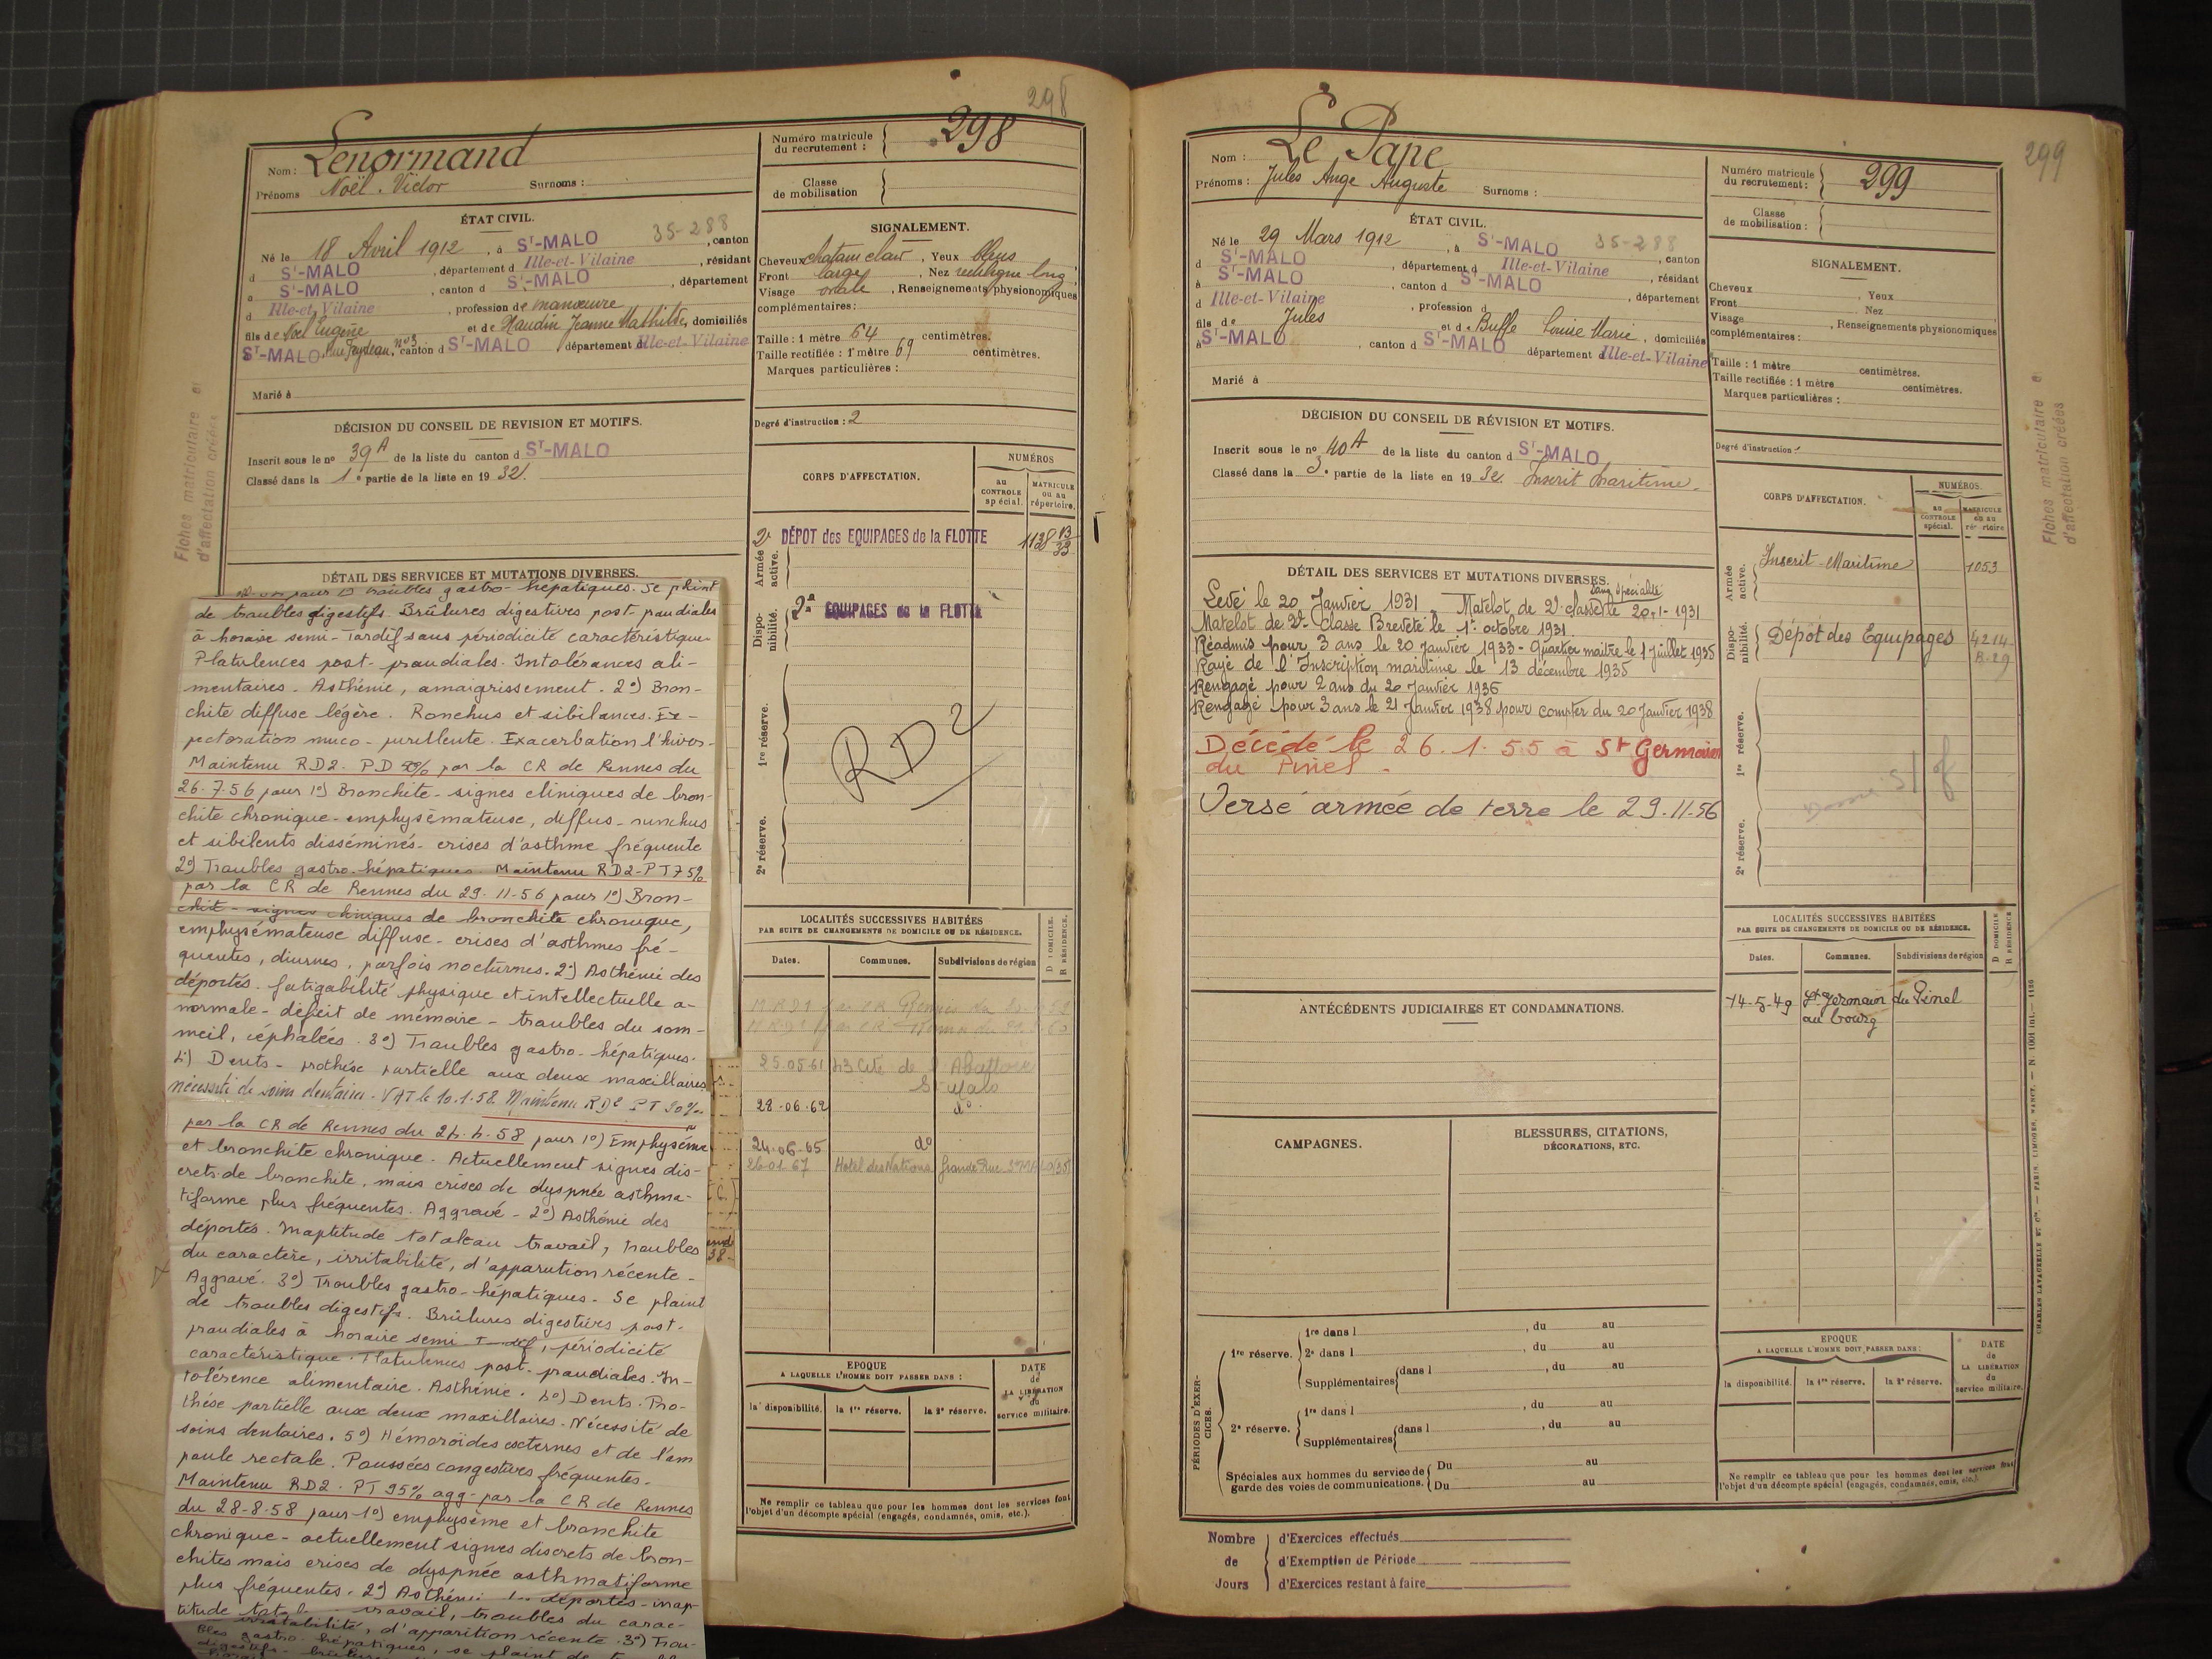 298
Nom : Lenormand
Prénoms Noël. Victor Surnoms :
Numéro matricule
du recrutement : 298
Classe
de mobilisation
ÉTAT CIVIL.
35-288
Né le 18 Avril 1912, à ST-MALO, canton
d ST-MALO, département d Ille-et-Vilaine, résidant
à ST-MALO, canton d ST-MALO, département
d Ille-et-Vilaine, profession de manœuvre
fils de Noël Eugène et de Jeanne Mathilde, domiciliés
ST-MALO, Rue Feydeau, n°3 canton d ST-MALO département d Ille-et-Vilaine
Marié à
SIGNALEMENT.
Cheveux chatain clair, Yeux bleus
Front large, Nez rectiligne long
Visage ovale, Renseignements physionomiques
complémentaires :
Taille : 1 mètre 64 centimètres.
Taille rectifiée : 1 mètre 69 centimètres.
Marques particulières :
Degré d'instruction : 2
DÉCISION DU CONSEIL DE REVISION ET MOTIFS.
Inscrit sous le no 39A de la liste du canton d ST-MALO
Classé dans la 1e partie de la liste en 1932.
Fiches matriculaire et
d'affectation créées
DÉTAIL DES SERVICES ET MUTATIONS DIVERSES.
pour troubles gastro-hépatiques. Se plaint
de troubles digestifs. Brûlures digestives post-pandiales
à horaire semi-Tardif sans périodicité caractéristique
Flatulences post-prandiales. Intolérances ali-
mentaires. Asthénie, amaigrissement. 2°) Bron-
chite diffuse légère. Ronchus et sibilances. Ex-
pectoration muco-purullente. Exacerbation l'hiver-
Maintenu RD2. PD % par la CR de Rennes du
26.7.56 pour 1°) Bronchite-signes cliniques de bron-
chite chronique-emphysémateuse, diffus-runchus
et sibilents disséminés-crises d'asthme fréquente
2°) Troubles gastro-hépatiques. Maintenu RD2-PT75%
par la CR de Rennes du 29.11-56 pour 1°) Bron-
chit-signes cliniques de bronchite chronique,
emphysémateuse diffuse-crises d'asthmes fré-
quentes, diurnes, parfois nocturnes. 2°) Asthénie des
déportés. fatigabilité physique et intellectuelle a-
normale-déficit de mémoire-troubles du som-
meil, céphalées. 3°) Troubles gastro-hépatiques.
4°) Dents-prothèse partielle aux deux maxillaires
nécessité de soins dentaires. VAT le 10.1.58. Maintenu RD2 PT 90%
par la CR de Rennes du 24.4.58 pour 1°) Emphysème
et bronchite chronique. Actuellement signes dis-
crets de bronchite, mais crises de dyspnée asthma-
tiforme plus fréquentes. Aggravé-2°) Asthénie des
déportés. Inaptitude totale au travail, troubles
du caractère, irritabilité, d'apparution récente-
Aggravé. 3°) Troubles gastro-hépatiques-Se plaint
de troubles digestifs. Brûlures digestives post-
prandiales à horaire semi-, périodicité
caractéristique. Flatulences post-prandiales. In-
tolérence alimentaire. Asthénie. 4°) Dents. Pro-
thèse partielle aux deux maxillaires. Nécessité de
soins dentaires. 5°) Hémoroïdes externes et de l'am
poule rectale. Poussées congestives fréquentes-
Maintenu RD2. PT 95% agg-par la CR de Rennes
du 28-8-58 pour 1°) emphysème et bronchite
chronique-actuellement signes discrets de bron-
chites mais crises de dyspnée asthmatiforme
plus fréquentes. 2°) Asthénie déportés-inap-
titude travail, troubles du carac-
irratabilité, d'apparition récente. 3°) Trou-
bles gastro-hépatiques, se plaint de
CORPS D'AFFECTATION.
NUMÉROS
au
CONTROLE
spécial.
MATRICULE
ou au
répertoire.
Armée
active.
2e DÉPOT des EQUIPAGES de la FLOTTE 1138 13/33
Dispo-
nibilité.
2e EQUIPAGES de la FLOTTE
1re réserve.
RD2
2e réserve.
LOCALITÉS SUCCESSIVES HABITÉES
PAR SUITE DE CHANGEMENTS DE DOMICILE OU DE RÉSIDENCE.
D DOMICILE.
R RÉSIDENCE.
Dates. Communes. Subdivisions de région
25.05.61 43 Cité de
St Malo
28.06.62 do
24.06.65 do
26.01.67 Hotel des Nations Grande Rue
EPOQUE
A LAQUELLE L'HOMME DOIT PASSER DANS :
la disponibilité. la 1re réserve. la 2e réserve.
DATE
de
LA LIBÉRATION
du
service militaire.
Ne remplir ce tableau que pour les hommes dont les services font
l'objet d'un décompte spécial (engagés, condamnés, omis, etc.).
299
Nom : Le Pape
Prénoms : Jules Ange Auguste Surnoms :
Numéro matricule
du recrutement : 299
Classe
de mobilisation :
ÉTAT CIVIL.
Né le 29 Mars 1912, à ST-MALO 35-288, canton
d ST-MALO, département d Ille-et-Vilaine, résidant
à ST-MALO, canton d ST-MALO, département
d Ille-et-Vilaine, profession d
fils de Jules et de Buffe Louise Marie, domiciliés
à ST-MALO, canton d ST-MALO département d Ille-et-Vilaine
Marié à
SIGNALEMENT.
Cheveux, Yeux
Front, Nez
Visage, Renseignements physionomiques
complémentaires :
Taille : 1 mètre centimètres.
Taille rectifiée : 1 mètre centimètres.
Marques particulières :
Degré d'instruction :
DÉCISION DU CONSEIL DE RÉVISION ET MOTIFS.
Inscrit sous le no 40A de la liste du canton d ST-MALO
Classé dans la 3e partie de la liste en 1932. Inscrit Maritime.
Fiches matriculaire e
d'affectation créées
DÉTAIL DES SERVICES ET MUTATIONS DIVERSES.
Levé le 20 Janvier 1931. Matelot de 2e classe sans spécialité le 20-1-1931
Matelot de 2e classe Breveté le 1er octobre 1931.
Réadmis pour 3 ans le 20 janvier 1933-Quartier maitre le 1 juillet 1935
Rayé de l'Inscription maritime le 13 décembre 1935
Rengagé pour 2 ans du 20 Janvier 1936
Rengagé pour 3 ans le 21 Janvier 1938 pour compter du 20 Janvier 1938
Décédé le 26.1.55 à St Germain
du Pinel.
Versé armée de terre le 29.11.56
CORPS D'AFFECTATION.
NUMÉROS.
au
CONTROLE
spécial.
MATRICULE
ou au
répertoire
Armée
active.
Inscrit-Maritime 1053
Dispo-
nibilité.
Dépôt des Equipages 4214
B.29
1re réserve.
2e réserve.
LOCALITÉS SUCCESSIVES HABITÉES
PAR SUITE DE CHANGEMENTS DE DOMICILE OU DE RÉSIDENCE.
D DOMICILE
R RÉSIDENCE
Dates. Communes. Subdivisions de région
14-5-49 St Germain du Pinel
au bourg
ANTÉCÉDENTS JUDICIAIRES ET CONDAMNATIONS.
CAMPAGNES.
BLESSURES, CITATIONS,
DÉCORATIONS, ETC.
PÉRIODES D'EXER-
CICES.
1re réserve. 1re dans l, du au
2e dans l, du au
Supplémentaires dans l, du au
2e réserve. 1re dans l, du au
Supplémentaires dans l, du au
Spéciales aux hommes du service de
garde des voies de communications. Du au
Du au
EPOQUE
A LAQUELLE L'HOMME DOIT PASSER DANS :
la disponibilité. la 1re réserve. la 2e réserve.
DATE
de
LA LIBÉRATION
du
service militaire.
Ne remplir ce tableau que pour les hommes dont les services font
l'objet d'un décompte spécial (engagés, condamnés, omis, etc.).
Nombre
de
Jours
d'Exercices effectués
d'Exemption de Période
d'Exercices restant à faire